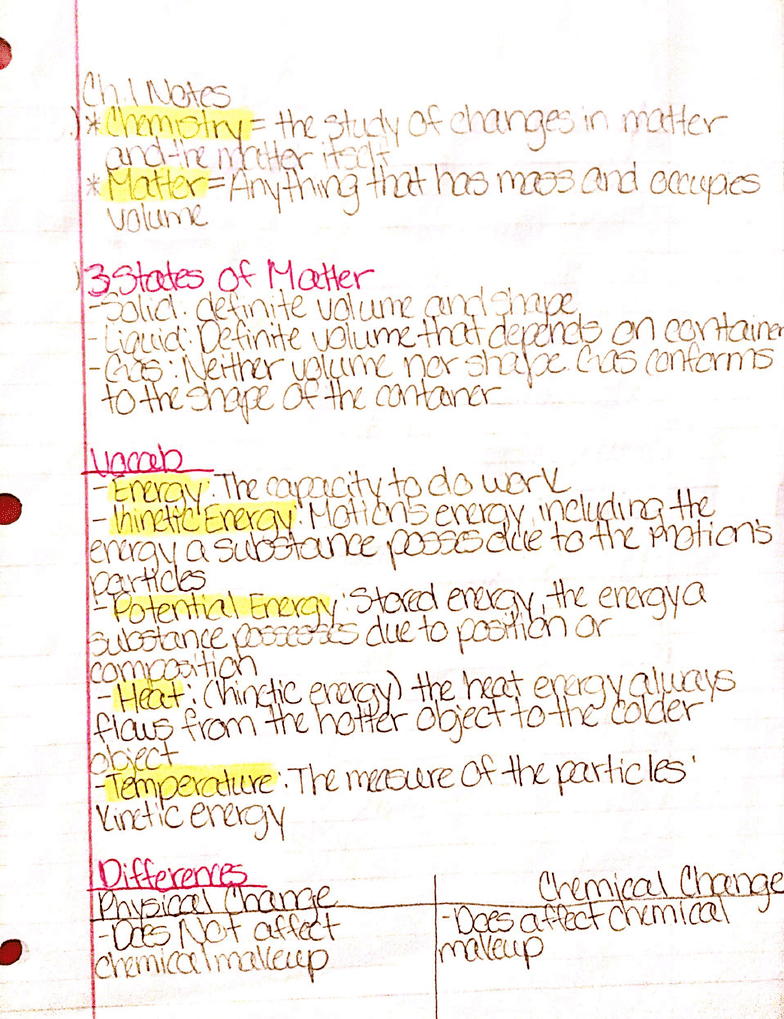 Ch.1 Notes
*Chemistry = the study of changes in matter
and the matter itself
*Matter = Anything that has mass and occupies
volume
3 States of Matter
-Solid: definite volume and shape
-Liquid: Definite volume that depends on container
-Gas: Neither volume nor shape. Gas conforms
to the shape of the container
Vocab
-Energy: The capacity to do work
-Kinetic Energy: Motion's energy, including the
energy a substance posses due to the motion's
particles
-Potential Energy: Stored energy, the energy a
substance possesses due to position or
composition
-Heat: (kinetic energy) the heat energy always
flows from the hotter object to the colder
object
-Temperature: The measure of the particles'
kinetic energy
Differences
Physical Change
Chemical Change
-Does Not affect
chemical makeup
-Does affect chemical
makeup